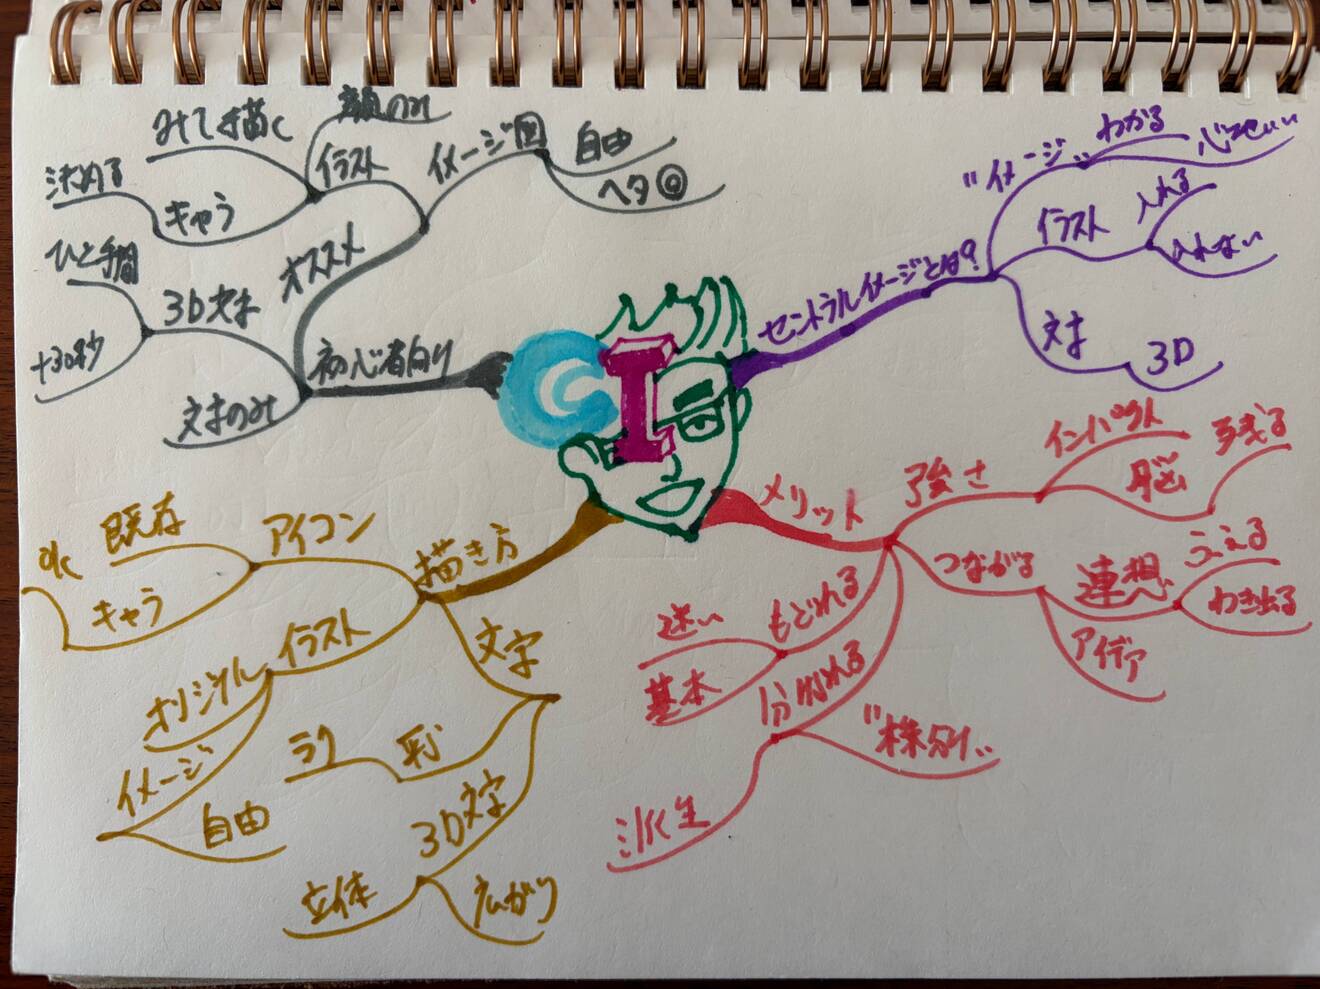 CI
セントラルイメージとは?
"イメージ"
わかる
イラスト
入れる
入れない
文字
3D
メリット
強さ
インパクト
脳
残る
つながる
連想
ふえる
わき出る
アイデア
もどれる
迷い
基本
分かれる
"株分け"
派生
描き方
アイコン
既存
キャラ
ok
イラスト
オリジナル
イメージ
自由
文字
ラク
3D文字
立体
広がり
初心者向け
オススメ
イメージ図
自由
ヘタ◎
イラスト
顔のみ
みて描く
キャラ
決める
3D文字
ひと手間
+30秒
文字のみ